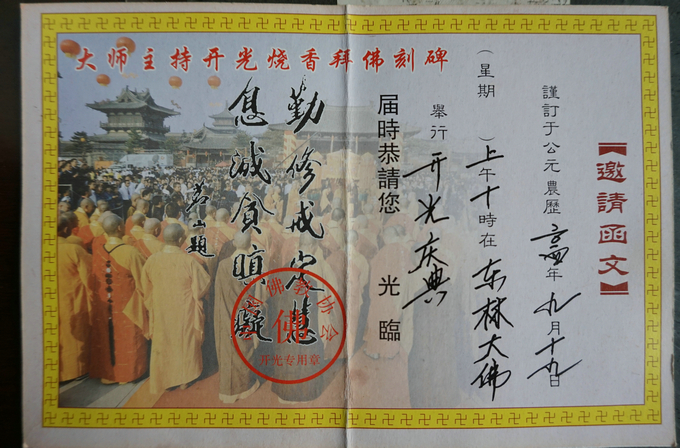 大师主持开光烧香拜佛刻碑
【邀請函文】
謹訂于公元農歷 年九月十九日
（星期 ）上午十時在东林大佛
舉行开光庆典
届時恭請您 光臨
勤修戒定慧
息滅貪瞋癡
茗山題
佛教协会
佛
开光专用章